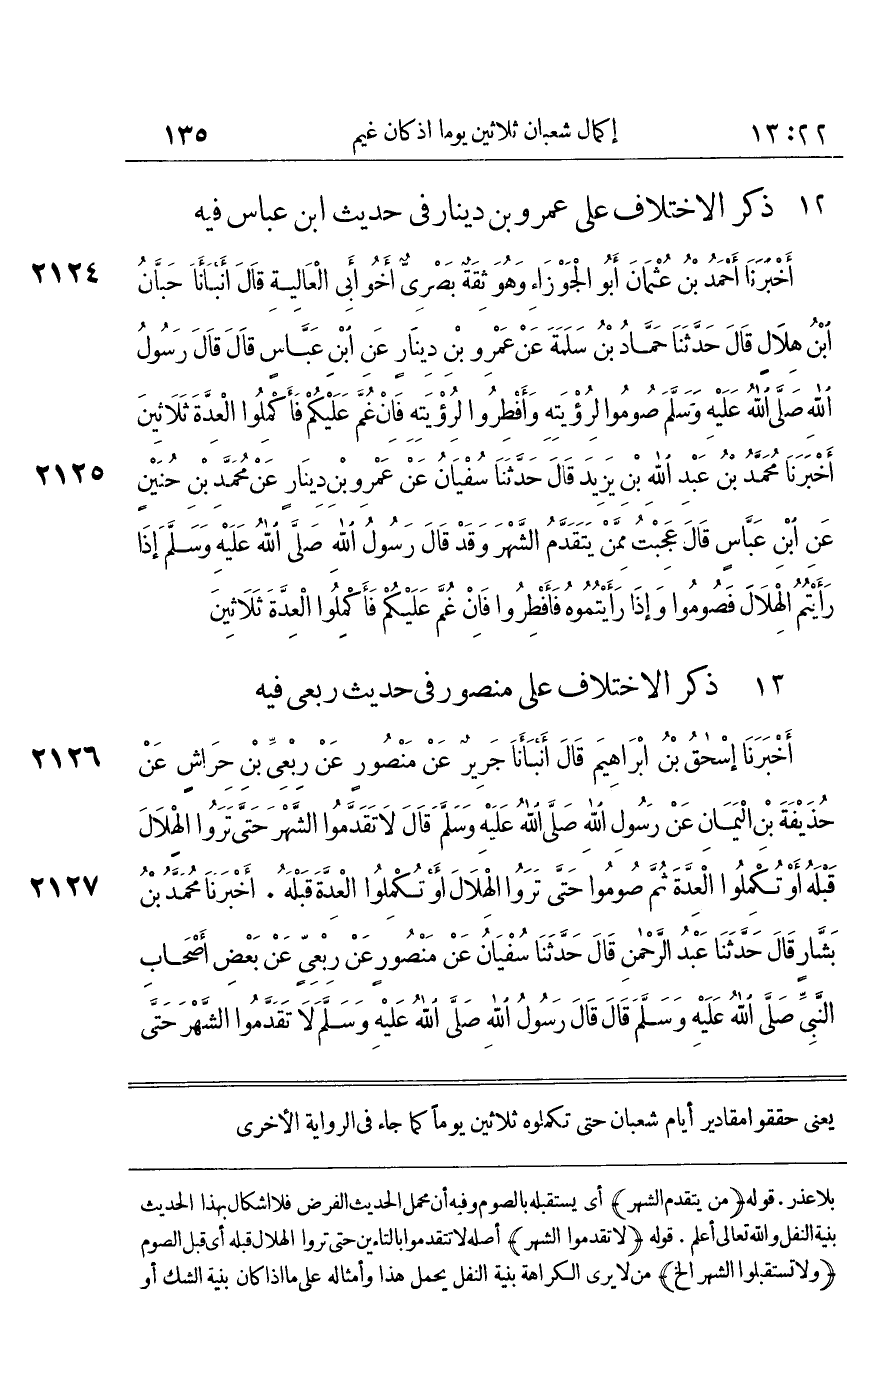 ١٣:٢٢ إكمال شعبان ثلاثين يوما اذ كان غيم ١٣٥
١٢ ذكر الاختلاف على عمرو بن دينار فى حديث ابن عباس فيه
٢١٢٤ أَخْبَرَنَا أَحْمَدُ بْنُ عُثْمَانَ أَبُو الْجَوْزَاءِ وَهُوَ ثِقَةٌ بَصْرِىٌّ أَخُو أَبِى الْعَالِيَةِ قَالَ أَنْبَأَنَا حَبَّانُ
ٱبْنُ هِلَالٍ قَالَ حَدَّثَنَا حَمَّادُ بْنُ سَلَمَةَ عَنْ عَمْرِو بْنِ دِينَارٍ عَنِ ٱبْنِ عَبَّاسٍ قَالَ قَالَ رَسُولُ
ٱللهِ صَلَّى ٱللهُ عَلَيْهِ وَسَلَّمَ صُومُوا لِرُؤْيَتِهِ وَأَفْطِرُوا لِرُؤْيَتِهِ فَانْ غُمَّ عَلَيْكُمْ فَأَكْمِلُوا الْعِدَّةَ ثَلَاثِينَ
٢١٢٥ أَخْبَرَنَا مُحَمَّدُ بْنُ عَبْدِ ٱللهِ بْنِ يَزِيدَ قَالَ حَدَّثَنَا سُفْيَانُ عَنْ عَمْرِو بْنِ دِينَارٍ عَنْ مُحَمَّدِ بْنِ حُنَيْنٍ
عَنِ ٱبْنِ عَبَّاسٍ قَالَ عَجِبْتُ مِمَّنْ يَتَقَدَّمُ الشَّهْرَ وَقَدْ قَالَ رَسُولُ ٱللهِ صَلَّى ٱللهُ عَلَيْهِ وَسَلَّمَ إِذَا
رَأَيْتُمُ الْهِلَالَ فَصُومُوا وَإِذَا رَأَيْتُمُوهُ فَأَفْطِرُوا فَانْ غُمَّ عَلَيْكُمْ فَأَكْمِلُوا الْعِدَّةَ ثَلَاثِينَ
١٣ ذكر الاختلاف على منصور فى حديث ربعى فيه
٢١٢٦ أَخْبَرَنَا إِسْحٰقُ بْنُ ابْرَاهِيمَ قَالَ أَنْبَأَنَا جَرِيرٌ عَنْ مَنْصُورٍ عَنْ رِبْعِىِّ بْنِ حِرَاشٍ عَنْ
حُذَيْفَةَ بْنِ الْيَمَانِ عَنْ رَسُولِ ٱللهِ صَلَّى ٱللهُ عَلَيْهِ وَسَلَّمَ قَالَ لَا تَقَدَّمُوا الشَّهْرَ حَتَّى تَرَوُا الْهِلَالَ
٢١٢٧ قَبْلَهُ أَوْ تُكْمِلُوا الْعِدَّةَ ثُمَّ صُومُوا حَتَّى تَرَوُا الْهِلَالَ أَوْ تُكْمِلُوا الْعِدَّةَ قَبْلَهُ . أَخْبَرَنَا مُحَمَّدُ بْنُ
بَشَّارٍ قَالَ حَدَّثَنَا عَبْدُ الرَّحْمٰنِ قَالَ حَدَّثَنَا سُفْيَانُ عَنْ مَنْصُورٍ عَنْ رِبْعِىٍّ عَنْ بَعْضِ أَصْحَابِ
النَّبِىِّ صَلَّى ٱللهُ عَلَيْهِ وَسَلَّمَ قَالَ قَالَ رَسُولُ ٱللهِ صَلَّى ٱللهُ عَلَيْهِ وَسَلَّمَ لَا تَقَدَّمُوا الشَّهْرَ حَتَّى
يعنى حققوا مقادير أيام شعبان حتى تكملوه ثلاثين يوماً كما جاء فى الرواية الأخرى
بلا عذر . قوله ﴿من يتقدم الشهر﴾ أى يستقبله بالصوم وفيه أن محمل الحديث الفرض فلا اشكال بهذا الحديث
بنية النفل والله تعالى أعلم . قوله ﴿لا تقدموا الشهر﴾ أصله لا تتقدموا بالتاءين حتى تروا الهلال قبله أى قبل الصوم
﴿ولا تستقبلوا الشهر الخ﴾ من لا يرى الكراهة بنية النفل يحمل هذا وأمثاله على ما اذا كان بنية الشك أو